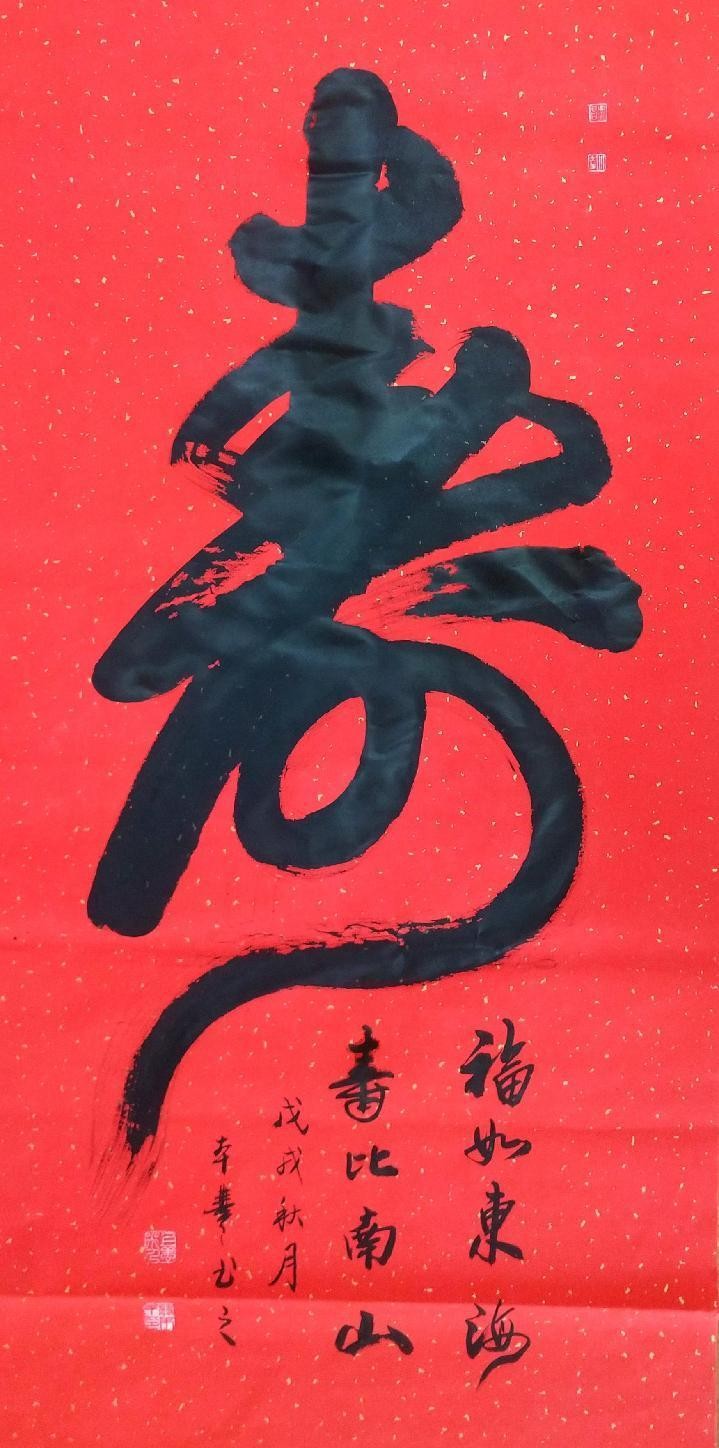 壽
福如東海
壽比南山
戊戌秋月
書之